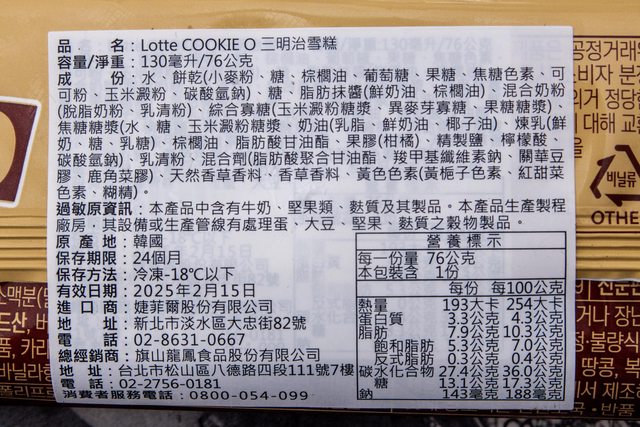 品　　名：Lotte COOKIE O 三明治雪糕
容量/淨重：130毫升/76公克
成　　份：水、餅乾(小麥粉、糖、棕櫚油、葡萄糖、果糖、焦糖色素、可
可粉、玉米澱粉、碳酸氫鈉)、糖、脂肪抹醬(鮮奶油、棕櫚油)、混合奶粉
(脫脂奶粉、乳清粉)、綜合寡糖(玉米澱粉糖漿、異麥芽寡糖、果糖糖漿)、
焦糖糖漿(水、糖、玉米澱粉糖漿、奶油(乳脂、鮮奶油、椰子油)、煉乳(鮮
奶、糖、乳糖)、棕櫚油、脂肪酸甘油酯、果膠(柑橘)、精製鹽、檸檬酸、
碳酸氫鈉)、乳清粉、混合劑(脂肪酸聚合甘油酯、羧甲基纖維素鈉、關華豆
膠、鹿角菜膠)、天然香草香料、香草香料、黃色色素(黃梔子色素、紅甜菜
色素、糊精)。
過敏原資訊：本產品中含有牛奶、堅果類、麩質及其製品。本產品生產製程
廠房，其設備或生產管線有處理蛋、大豆、堅果、麩質之穀物製品。
原 產 地：韓國
保存期限：24個月
保存方法：冷凍-18℃以下
有效日期：2025年2月15日
進 口 商：婕菲爾股份有限公司
地　　址：新北市淡水區大忠街82號
電　　話：02-8631-0667
總經銷商：旗山龍鳳食品股份有限公司
地　　址：台北市松山區八德路四段111號7樓
電　　話：02-2756-0181
消費者服務電話：0800-054-099
營養標示
每一份量 76公克
本包裝含 1份
每份 每100公克
熱量 193大卡 254大卡
蛋白質 3.3公克 4.3公克
脂肪 7.9公克 10.3公克
飽和脂肪 5.3公克 7.0公克
反式脂肪 0.3公克 0.4公克
碳水化合物 27.4公克 36.0公克
糖 13.1公克 17.3公克
鈉 143毫克 188毫克
공정거래위
비자 분
의거 정당한
대해 교환
을
비닐류
OTHE